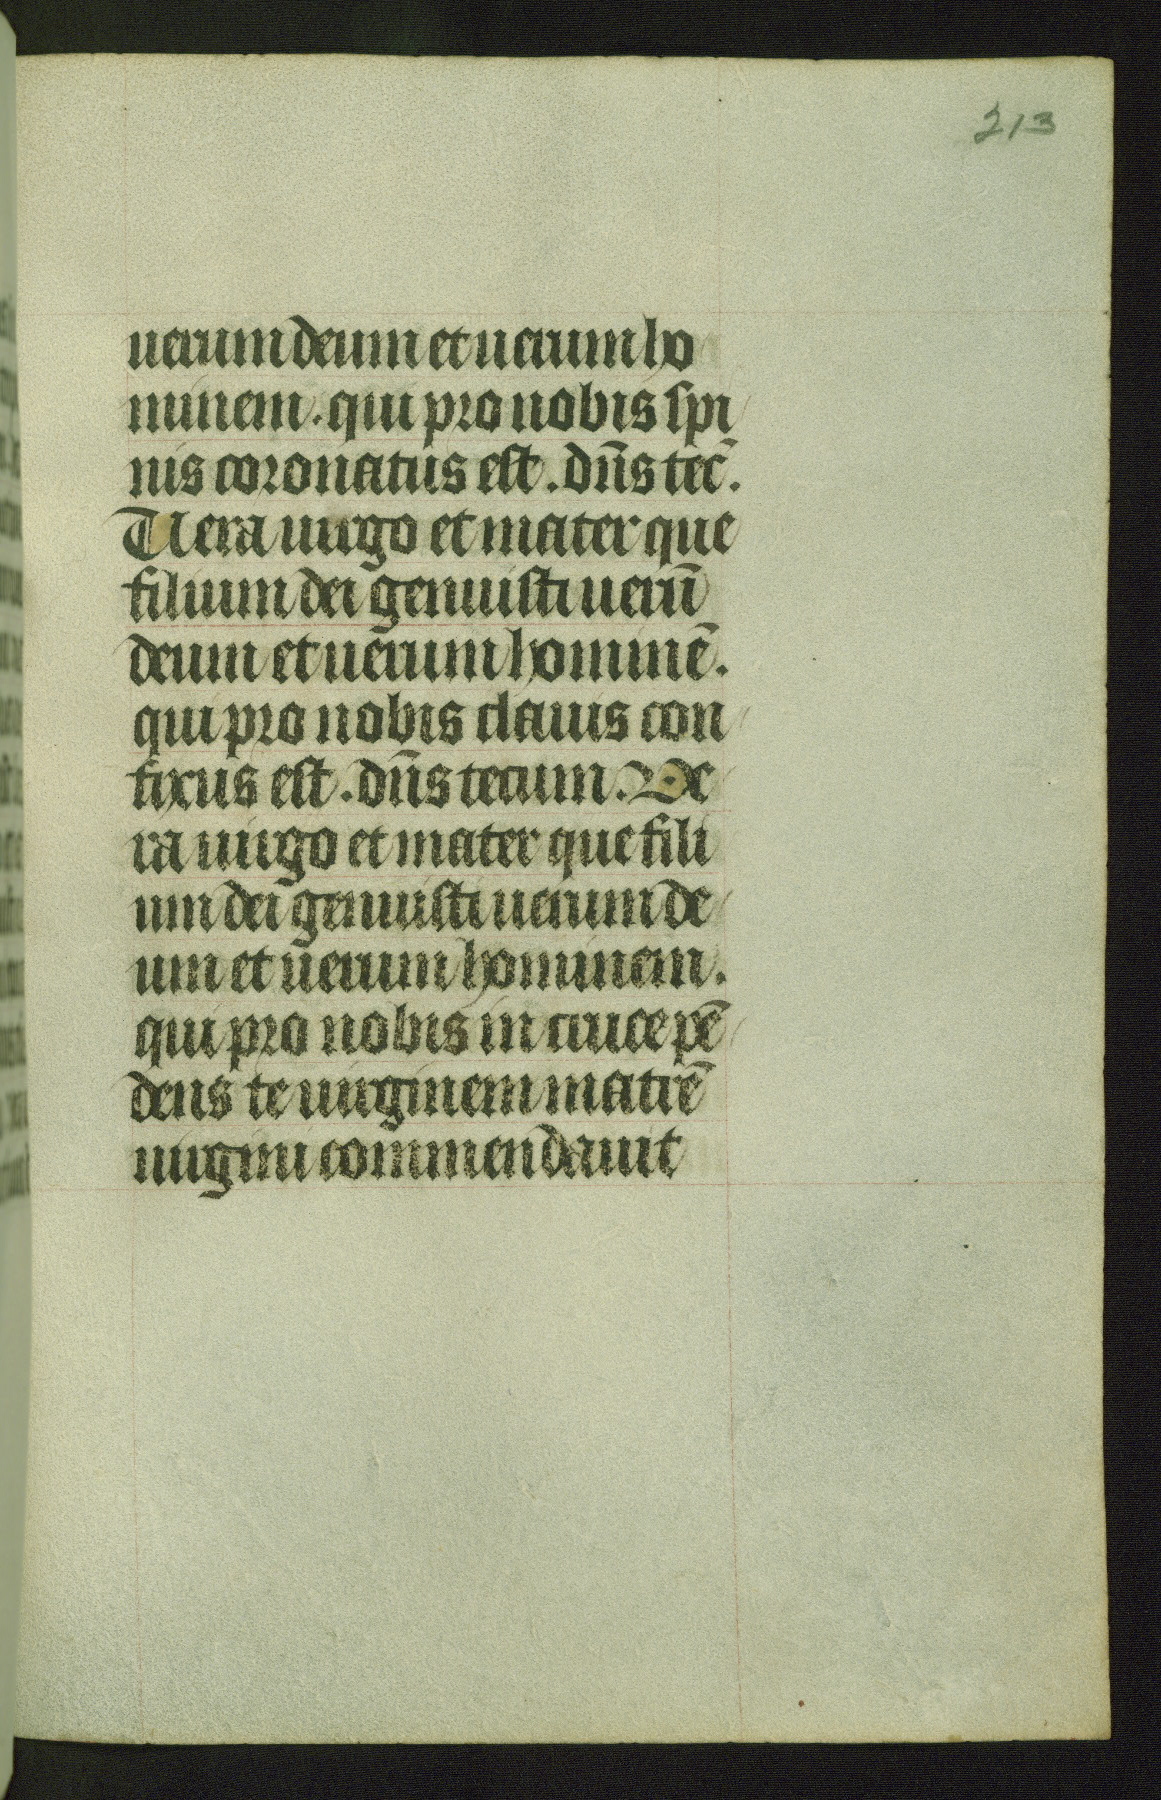 213
uerum deum et uerum ho
minem. qui pro nobis spi
nis coronatus est. dn̄s tec̄.
Uera uirgo et mater que
filium dei genuisti uerū
deum et uerum hominē.
qui pro nobis clauis con
fixus est. dn̄s tecum. Ve
ra uirgo et mater que fili
um dei genuisti uerum de
um et uerum hominem.
qui pro nobis in cruce pē
dens te uirginem matrē
uirgini commendauit